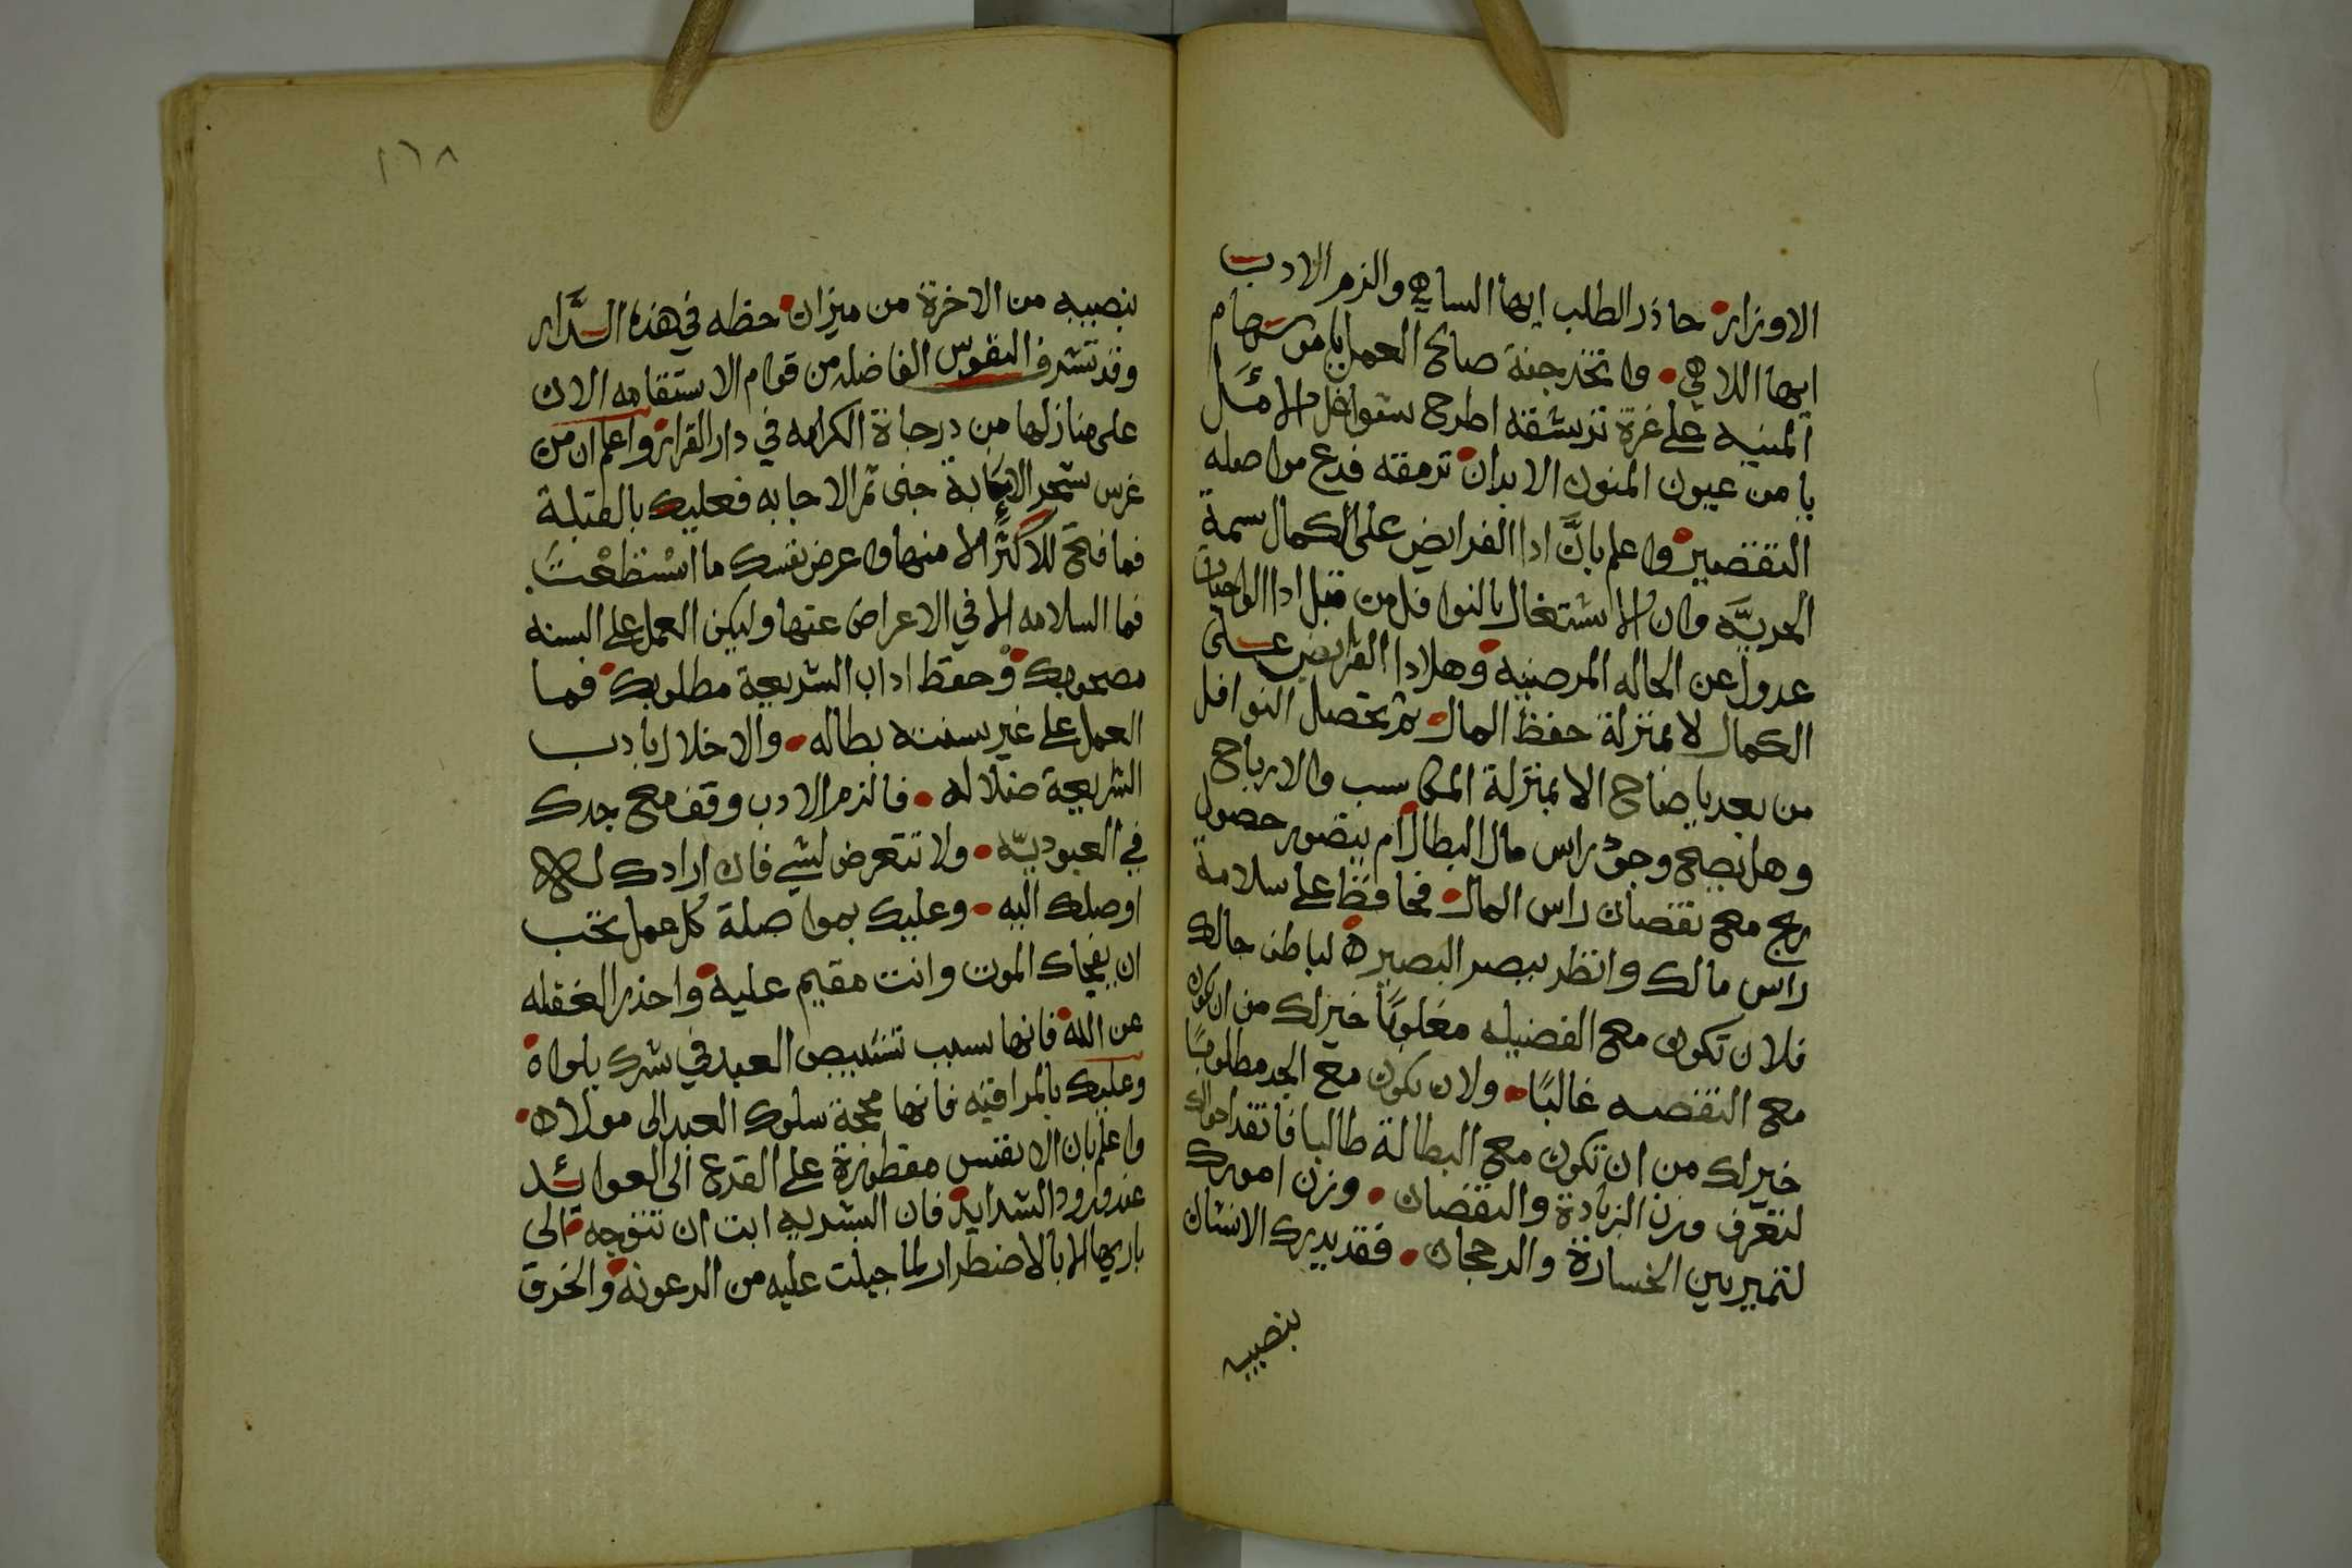 الاوزار حاذر الطلب ايها الساهي والزم الادب
ايها اللاهي واتخذ جنة صالح العمل يا من سهام
المنيه على غرة ترشقه اطرح سوافل الامل
يا من عيون المنون الابدان ترمقه فدع مواصله
التقصير واعلم بانَّ ادا الفرايض على الكمال سمة
الحريَّه وان الاشتغال بالنوافل من قبل ادا الواجبات
عدول عن الحاله المرضيه وهل ادا الفرايض على
الكمال لا بمنزلة حفظ المال ثم تحصل النوافل
من بعد يا صاح الا بمنزلة المكاسب والارباح
وهل يصح وجود راس مال البطال ام يتصور حصول
ربح مع نقصان راس المال فحافظ على سلامة
راس مالك وانظر ببصر البصيرة لباطن حالك
فلان تكون مع الفضيله مغلوبًا خير لك من ان تكون
مع النقصه غالبًا ولان تكون مع الجد مطلوبًا
خير لك من ان تكون مع البطالة طالبا فاتقد احوالك
لتعرف وزن الزيادة والنقصان وزن امورك
لتميز بين الخسارة والرجحان فقد يدرك الانسان
بنصيبه
١٦٨
بنصيبه من الاخرة من ميزان حظه في هذه الدَّار
وقد تشرف النفوس الفاضله من قوام الاستقامه الان
على منازلها من درجاة الكرامه في دار القرار واعلم ان من
غرس شجر الانابة جنى ثمر الاجابه فعليك بالقبلة
فما فتح للاكثر الا منها واعرض بنفسك ما اسْتَطَعْتَ
فما السلامه الا في الاعراض عنها وليكن العمل على السنه
مصحوبك وحفظ اداب الشريعة مطلوبك فما
العمل على غير سنته بطاله والاخلال بادب
الشريعة ضلاله فالزم الادب وقف مع جدك
في العبوديّه ولا تتعرض لشي فان ارادك له
اوصلك اليه وعليك بمواصلة كل عمل تحب
ان يفجاك الموت وانت مقيم عليه واحذر الغفله
عن الله فانها سبب العبد في شرك بلواه
وعليك بالمراقبه فانها محجة سلوك العبد الى مولاه
واعلم بان الانفس مفطورة على القدع الى العوائد
عند ورود الشدايد فان البشريه ابت ان تتوجه الى
باريها الا بالاضطرار لما جبلت عليه من الرعونه والخرق